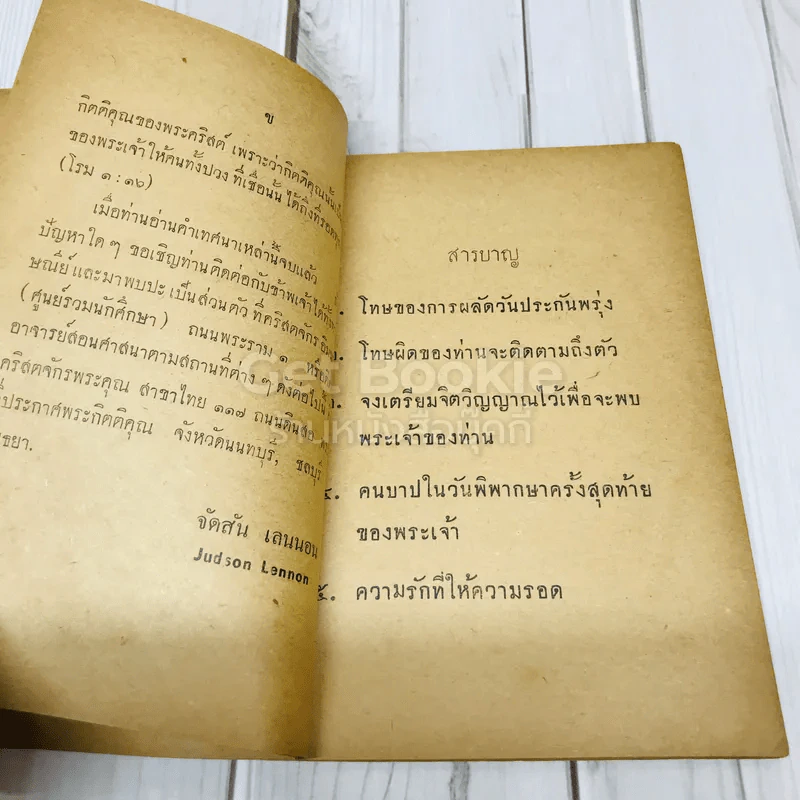 ข
กิตติคุณของพระคริสต์ เพราะว่ากิตติคุณนั้น
ของพระเจ้าให้คนทั้งปวง ที่เชื่อนั้น ได้ถึงที่รอด
(โรม ๑ : ๑๖)
เมื่อท่านอ่านคำเทศนาเหล่านี้จบแล้ว
ปัญหาใด ๆ ขอเชิญท่านติดต่อกับข้าพเจ้าได้
ษณีย์ และมาพบปะ เป็นส่วนตัว ที่คริสตจักร
(ศูนย์รวมนักศึกษา) ถนนพระราม ๑ หรือ
อาจารย์สอนศาสนาตามสถานที่ต่าง ๆ ดังต่อไปนี้
คริสตจักรพระคุณ สาขาไทย ๑๑๗ ถนนดินสอ
ประกาศพระกิตติคุณ จังหวัดนนทบุรี, ชลบุรี
ธยา.
จัดสัน เลนนอน
Judson Lennon
สารบาญ
โทษของการผลัดวันประกันพรุ่ง
โทษผิดของท่านจะติดตามถึงตัว
จงเตรียมจิตวิญญาณไว้เพื่อจะพบ
พระเจ้าของท่าน
๔. คนบาปในวันพิพากษาครั้งสุดท้าย
ของพระเจ้า
๕. ความรักที่ให้ความรอด
Get Bookie
ร้านหนังสือบุ๊กกี้